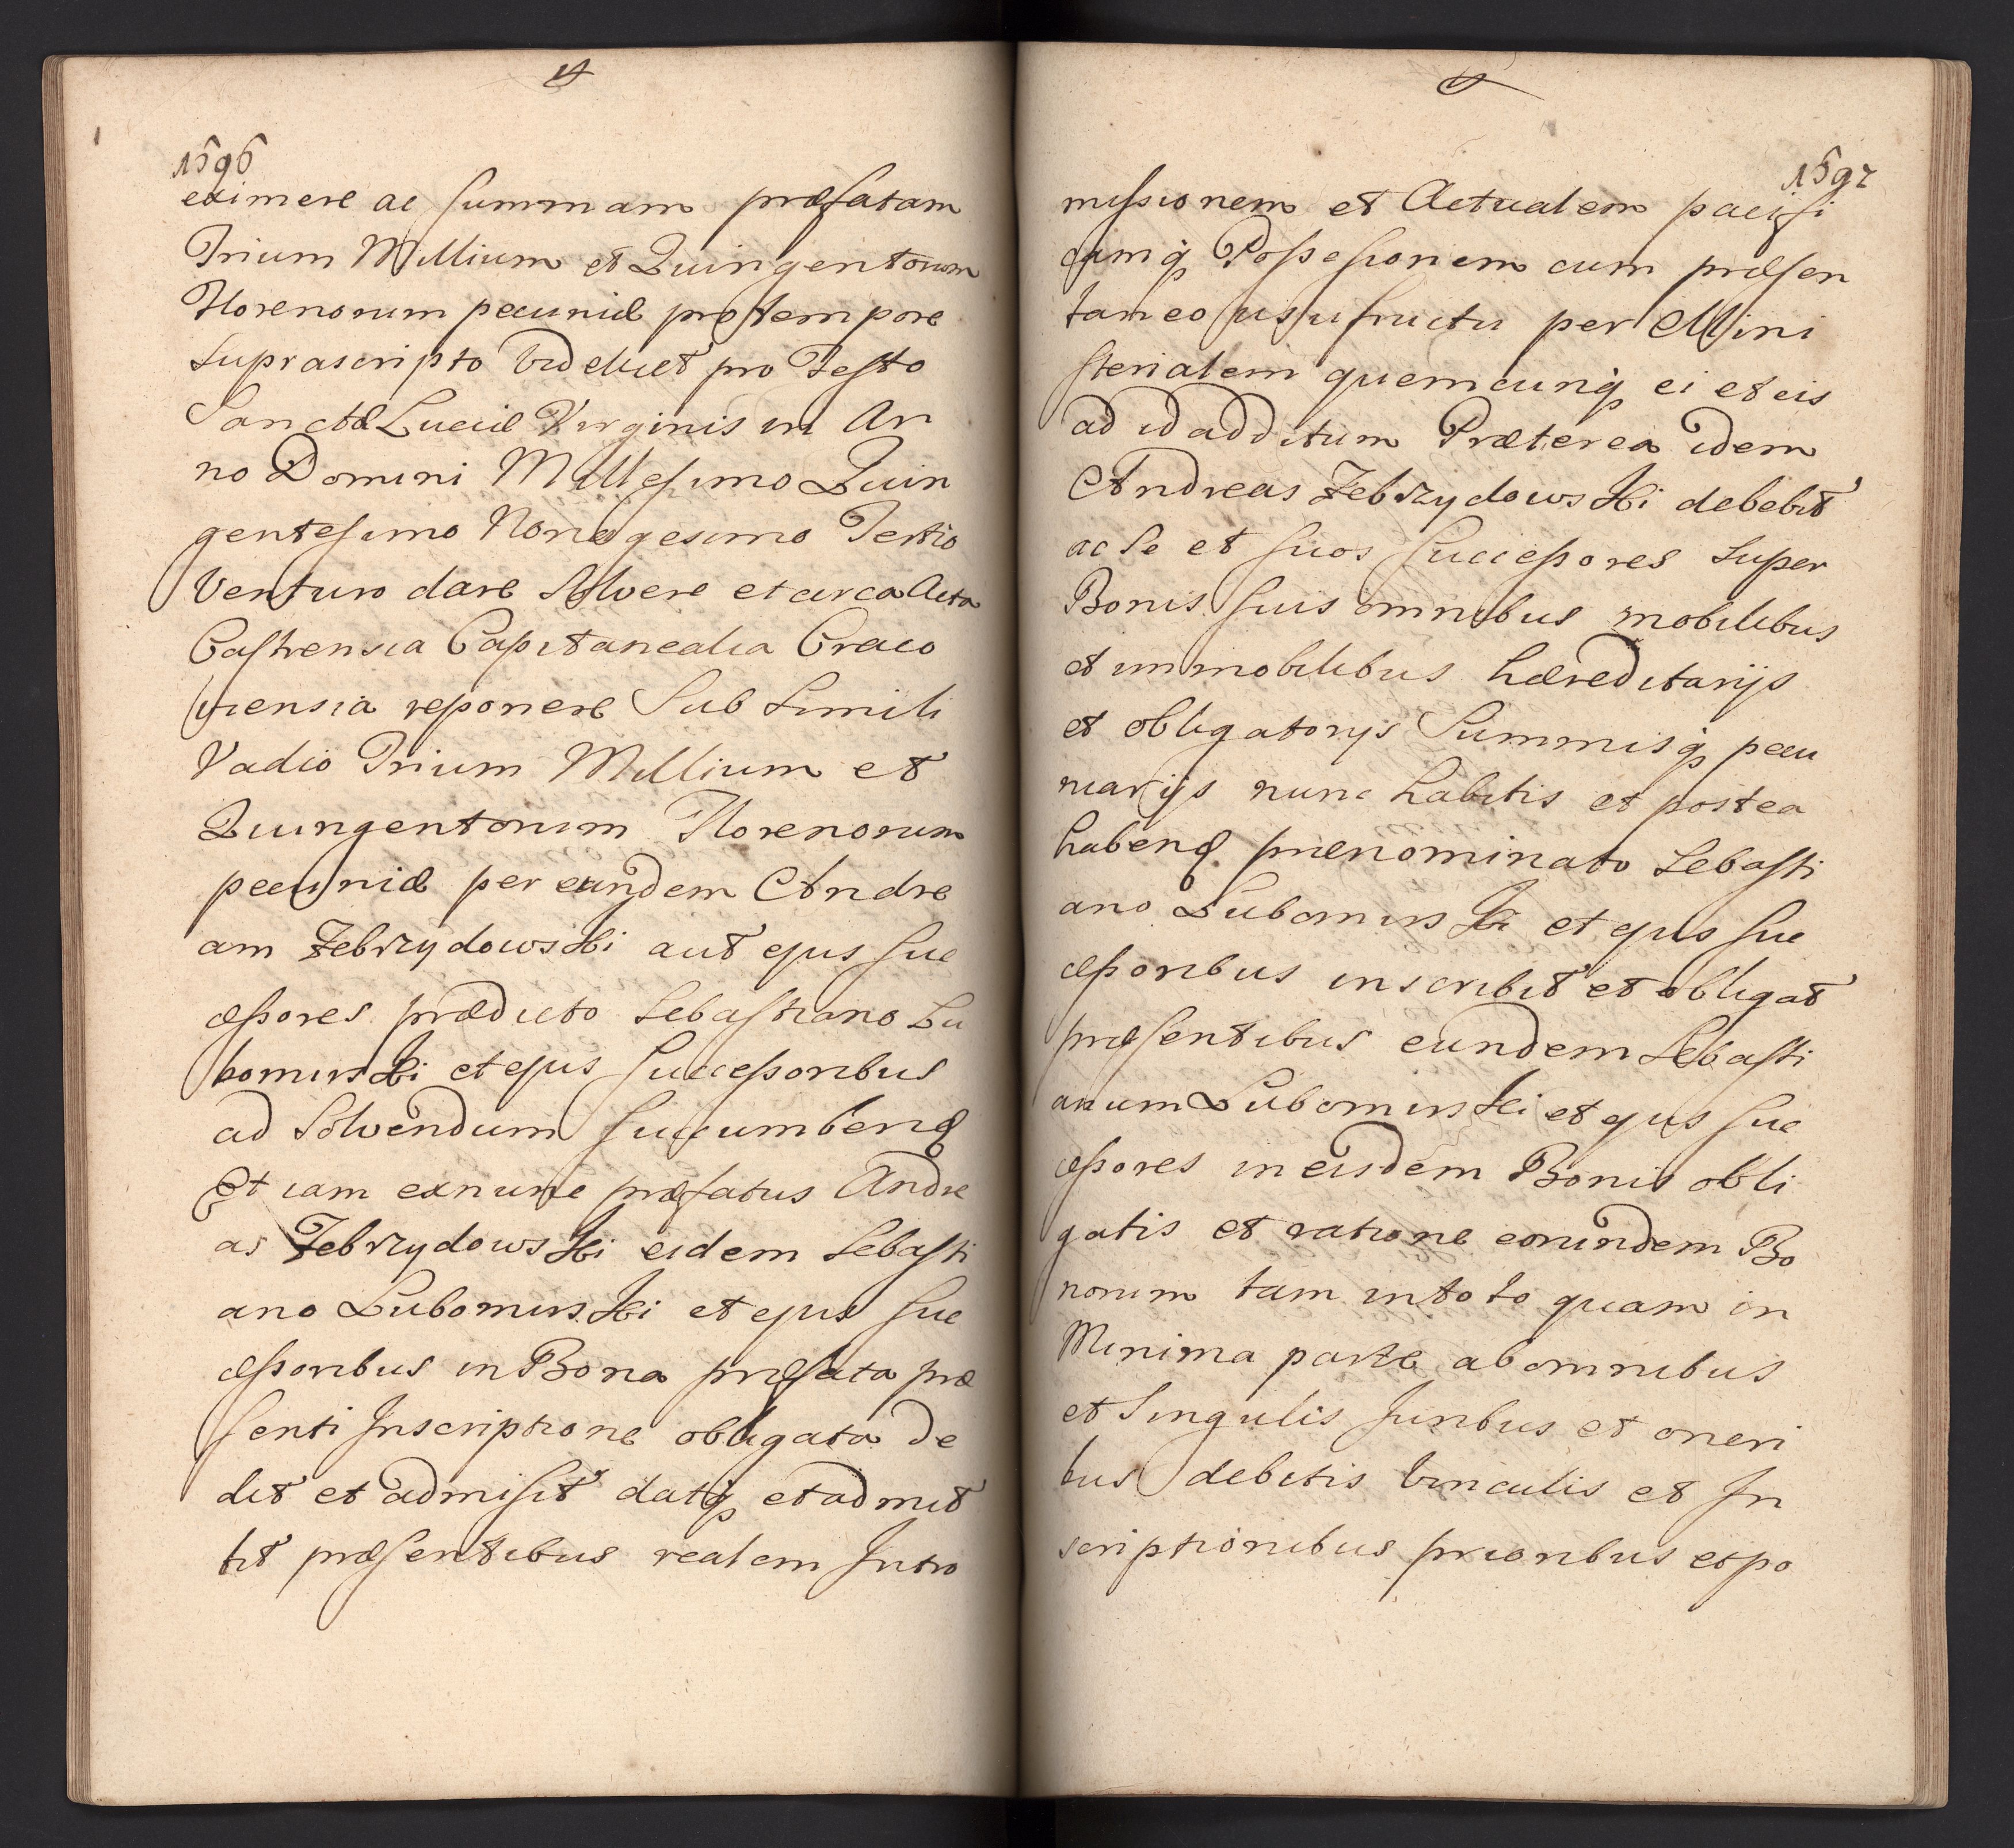 1596
eximere ac summam præfatam
Trium Millium et Quingentorum
Florenorum pecuniæ pro tempore
Suprascripto videlicet pro Festo
Sanctæ Luciæ Virginis in An
no Domini Millesimo Quin
gentesimo Nonagesimo Tertio
Venturo dare Solvere et circa Acta
Castrensia Capitanealia Craco
viensia reponere Sub Simili
Vadio Trium Millium et
Quingentorum Florenorum
pecuniæ per eundem Andre
am Zebrzydowski aut ejus Suc
cessores prædicto Sebastiano Lu
bomirski et ejus Successoribus
ad Solvendum Succumbenđ
Et iam exnunc præfatus Andre
as Zebrzydowski eidem Sebasti
ano Lubomirski et ejus Suc
cessoribus in Bona præfata præ
senti Inscriptione obligata de
dit et admisit datq́ et admit
tit præsentibus realem Intro
1597
missionem et Actualem pacifi
camq́ Possessionem cum præsen
taneo usufructu per Mini
sterialem quemcunq́ ei et eis
ad id additum Præterea idem
Andreas Zebrzydowski debebit
ac Se et suos Successores Super
Bonis suis omnibus mobilibus
et immobilibus hæreditarijs
et obligatorijs Summisq́ pecu
niarijs nunc habitis et postea
habenđ prænominato Sebasti
ano Lubomirski et ejus Suc
cessoribus inscribit et obligat
præsentibus eundem Sebasti
anum Lubomirski et ejus Suc
cessores in eisdem Bonis obli
gatis et ratione eorundem Bo
norum tam in toto quam in
Minima parte ab omnibus
et Singulis Juribus et oneri
bus debitis vinculis et In
scriptionibus prioribus et po